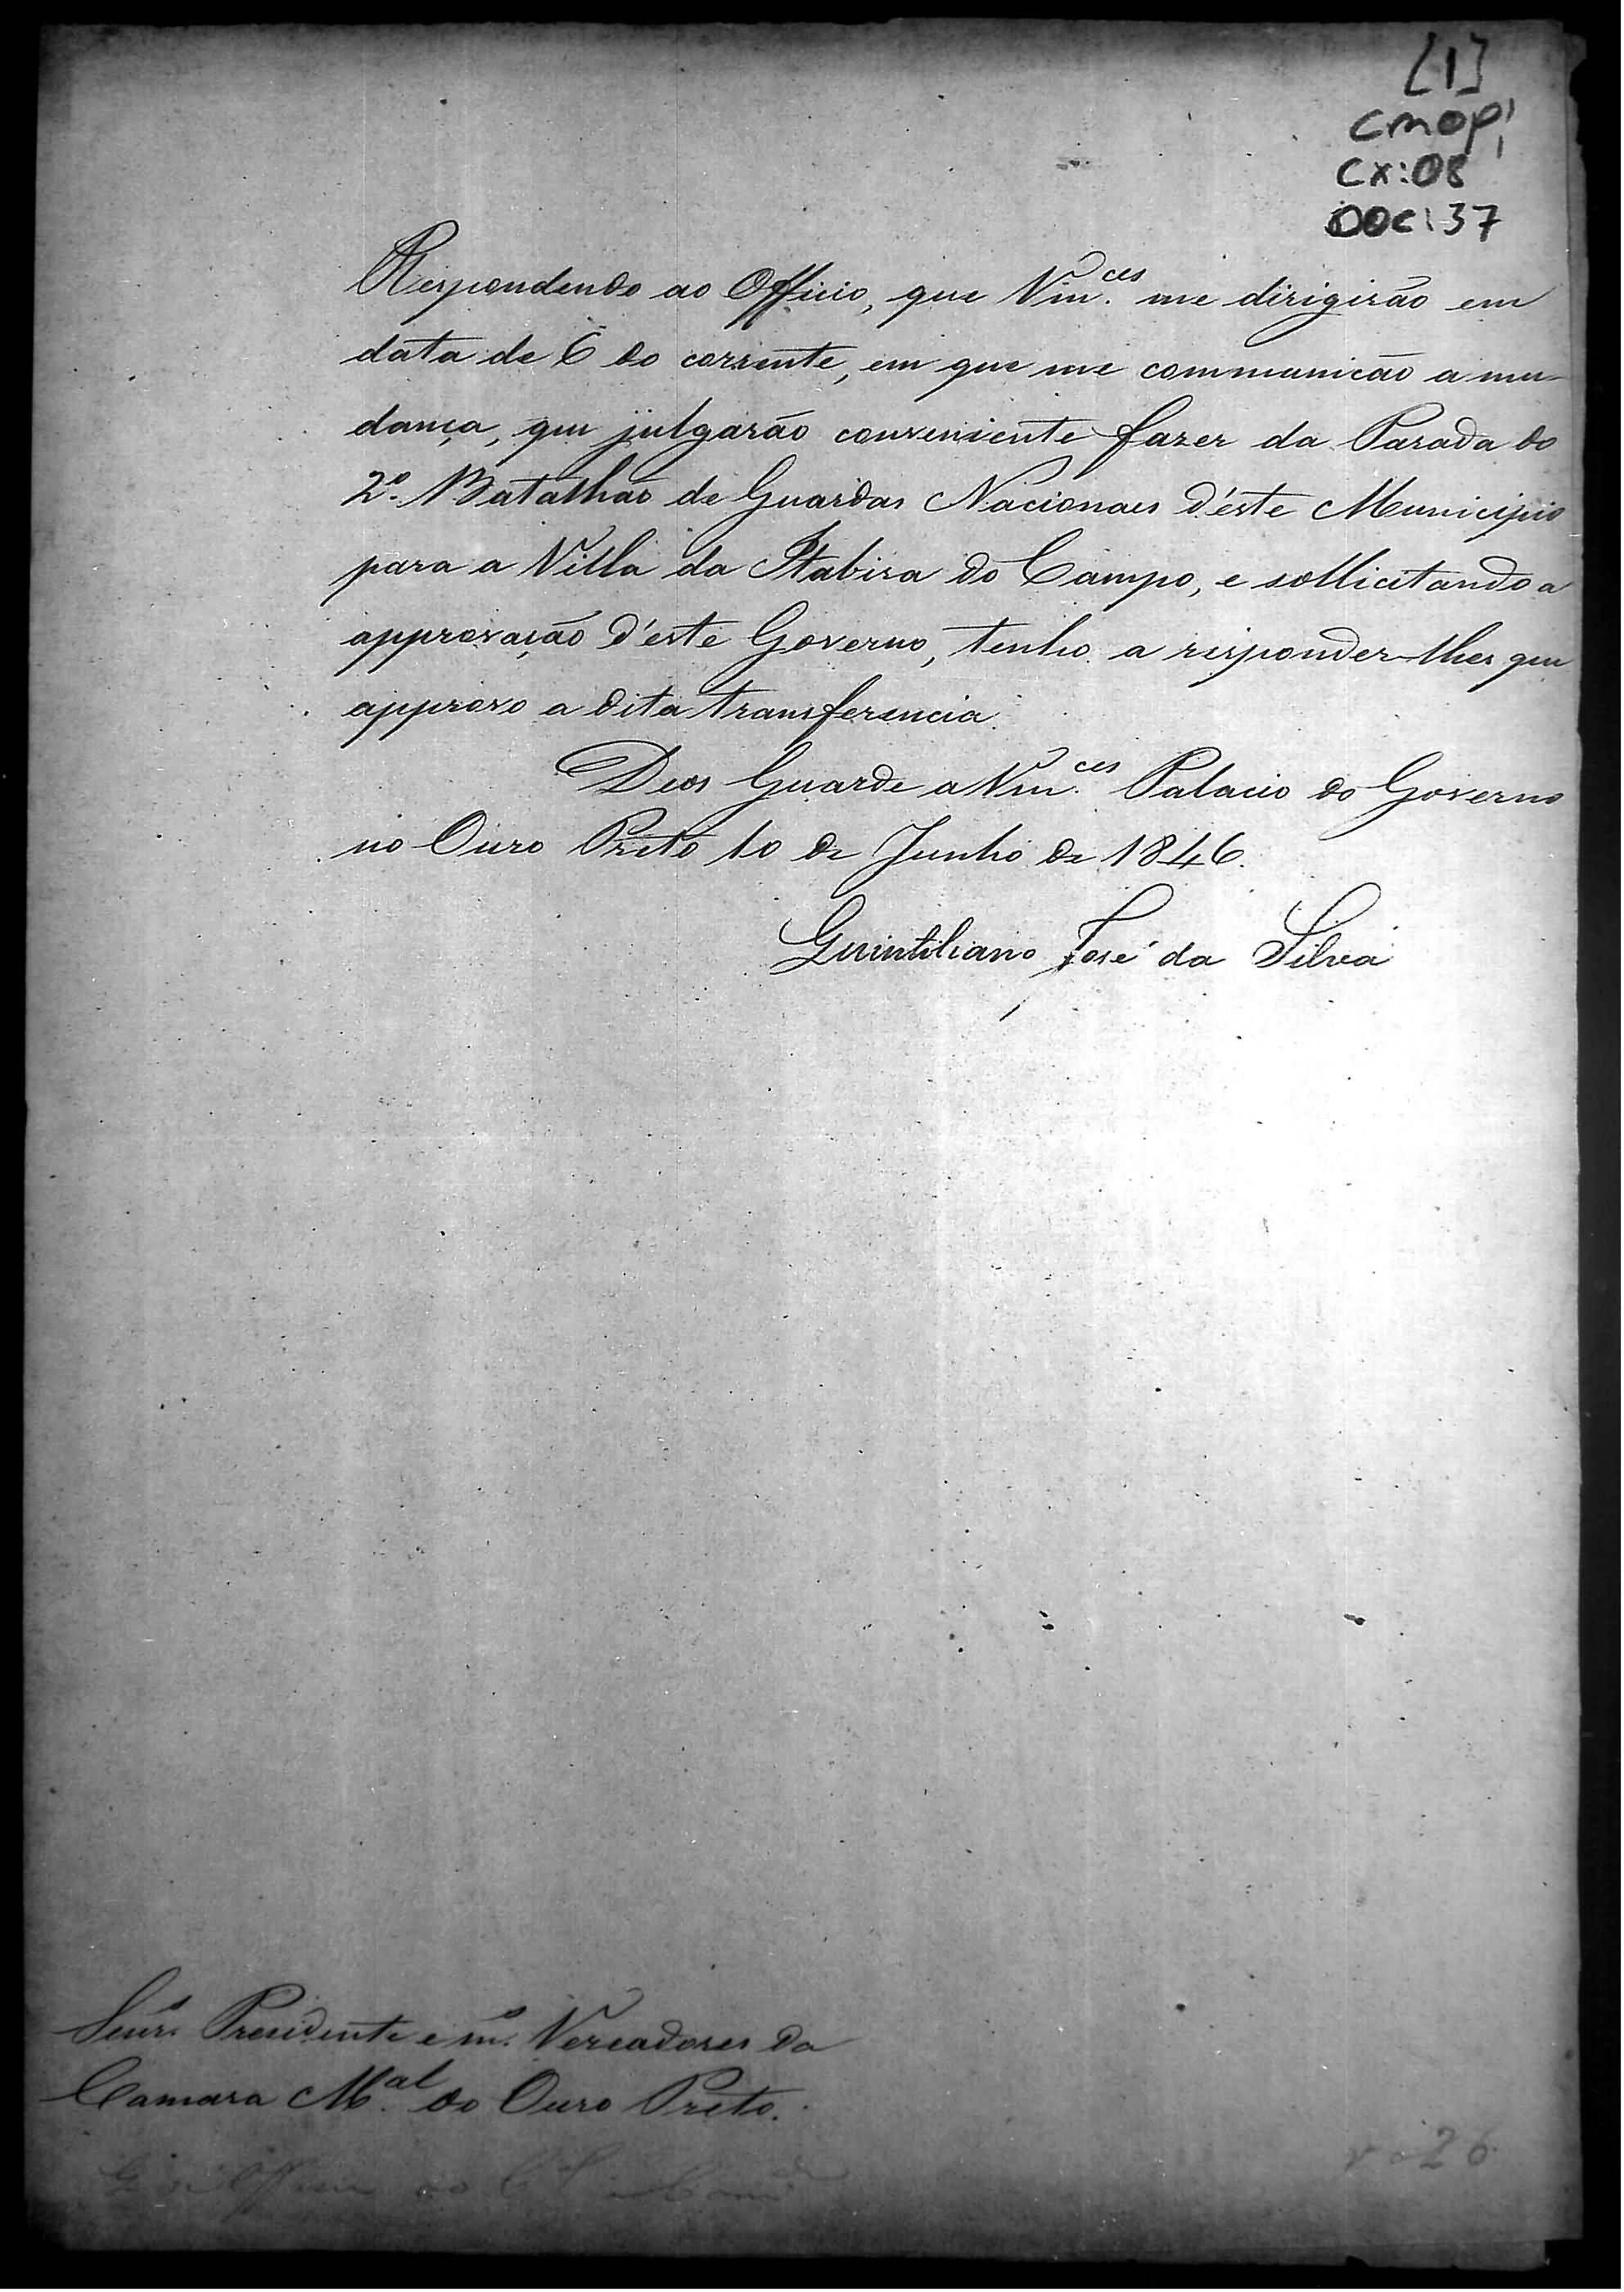 [1]
CMOP
CX:08
DOC:37
Respondendo ao Officio, que Vm.ces me dirigirão em
data de 6 do corrente, em que me communicão a mu-
dança, que julgarão conveniente fazer da Parada do
2º Batalhão de Guardas Nacionaes d'éste Municipio
para a Villa da Itabira do Campo, e sollicitando a
approvação d'éste Governo, tenho a responder-lhes que
approvo a dita transferencia.
Deos Guarde a Vm.ces Palacio do Governo
no Ouro Preto 10 de Junho de 1846.
Quintiliano José da Silva
Senr.s Presidente e m.s Vereadores da
Camara M.al do Ouro Preto.
Officio ao
26